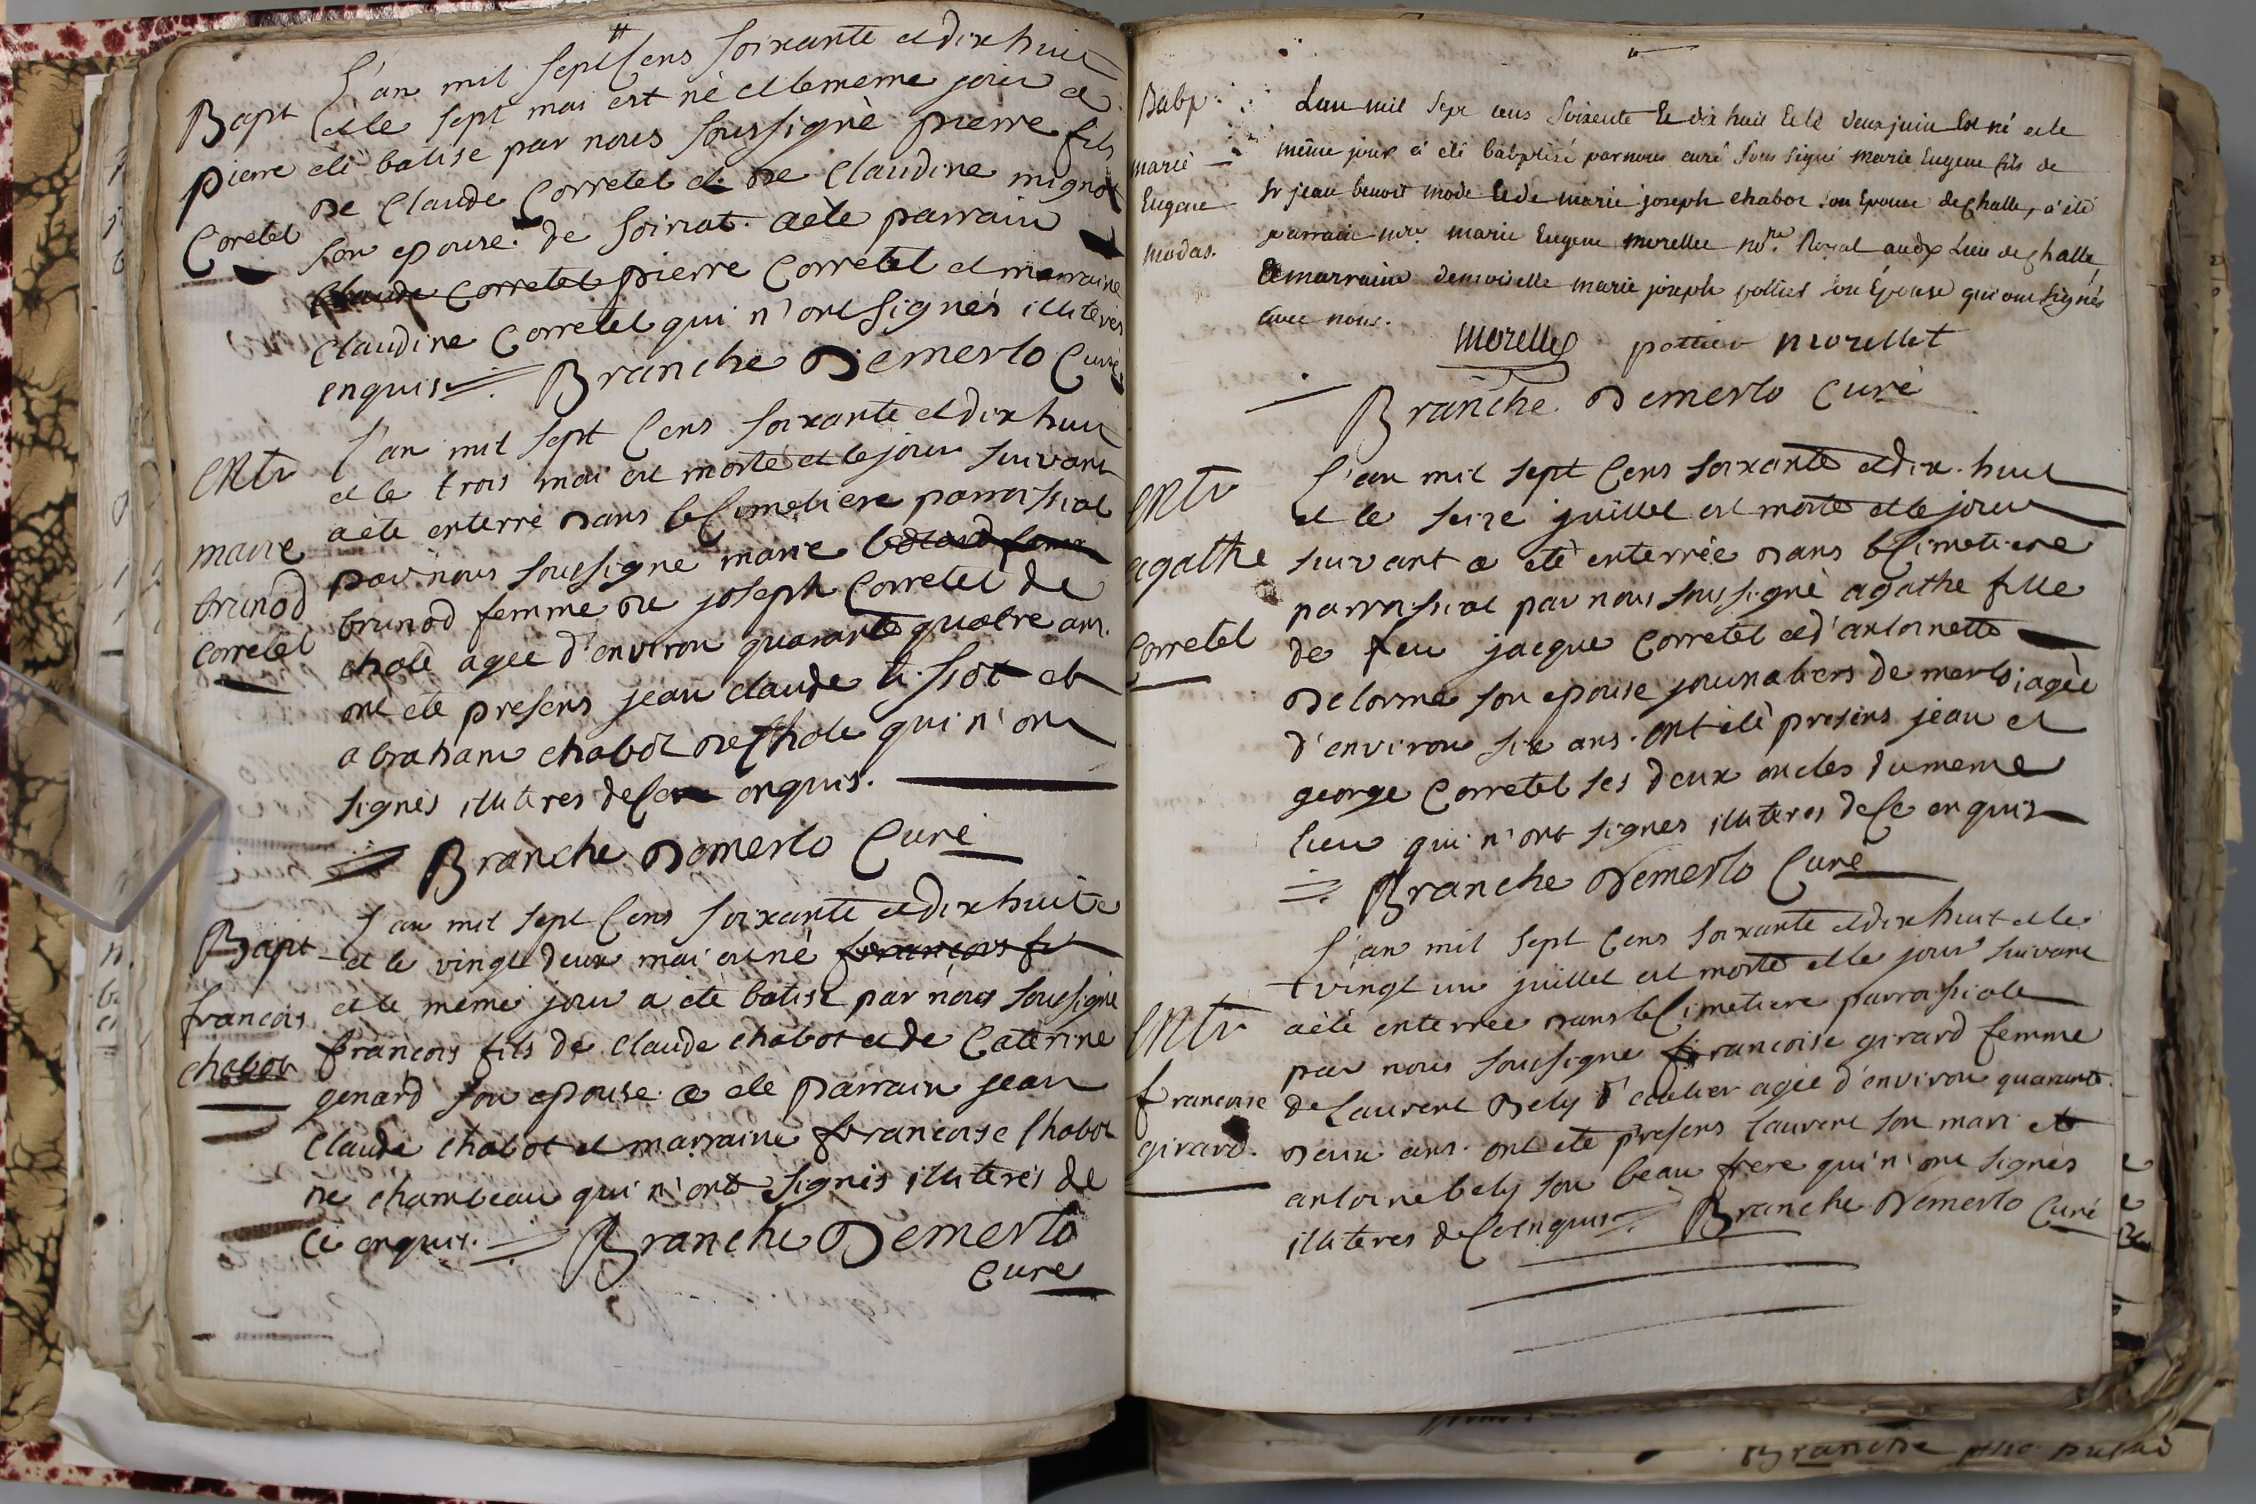 Bapt
pierre
Coretel
L'an mil sept Cens soixante et dix huit
et le sept mai est né et le meme jour a
eté batisé par nous soussigné pierre fils
de Claude Corretel et de Claudine mignot
son epouse de soirrat. a eté parrain
Claude Corretel pierre Corretel et marraine
Claudine Corretel qui n'ont signés illiterés
enquis Branche Demerlo Curé
Entr
marie
brunod
Corretel
L'an mil sept Cens soixante et dix huit
et le trois mai est morte et le jour suivant
a eté enterré dans le Cimetiere parroissial
par nous soussigné marie
brunod femme de joseph Corretel de
chale agee d'environ quarante quatre ans.
ont eté presens jean claude tissot et
abraham chabot de Chale qui n'ont
signés illiteres de Ce enquis.
Branche Demerlo Curé
Bapt
francois
chabot
L'an mil sept Cens soixante et dix huit
et le vingt deux mai est né francois fil
et le meme jour a eté batisé par nous soussigné
francois fils de Claude chabot et de Caterine
genard son epouse a eté parrain jean
Claude chabot et marraine francoise Chabot
ne chambeau qui n'ont signés illiterés de
Ce enquis. Branche Demerlo
Curé
Babp.
marie
Eugene
modas.
Lan mil sept cens Soixente Et dix huit Et le deux juin Est né et le
même jour a été babptisé par nous curé Sous signé marie Eugene fils de
Sr jean benoit mode Et de marie joseph chabot son Epouse de Challe, a été
parrain mre. marie Eugene morellet nore. Royal audx Lieu de Challe,
Et marraine demoiselle marie joseph pottiet son Épouse qui ont signés
avec nous.
Morellet pottier morellet
Branche Demerlo Curé
Entr
agathe
Corretel
L'an mil sept Cens soixante et dix. huit
et le seize juillet est morte et le jour
suivant a eté enterrée dans le Cimetiere
parroissial par nous soussigné agathe fille
de feu jacque Corretel et d'antoinette
Delorme son epouse journaliers de merlo agée
d'environ six ans. ont eté presens jean et
george Corretel ses deux oncles du meme
lieu qui n'ont signes illiteres de Ce enquis
Branche Demerlo Curé
Entr
francoise
girard.
L'an mil sept Cens soixante et dix huit et le
vingt un juillet est morte et le jour suivant
a eté enterree dans le Cimetiere parroissiale
par nous soussigné francoise girard femme
de Laurent Bely agée d'environ quarante
deux ans. ont eté presens laurent son mari et
antoine bely son beau frere qui n'ont signés
illiteres de Ce enquis Branche Demerlo Curé
Branche